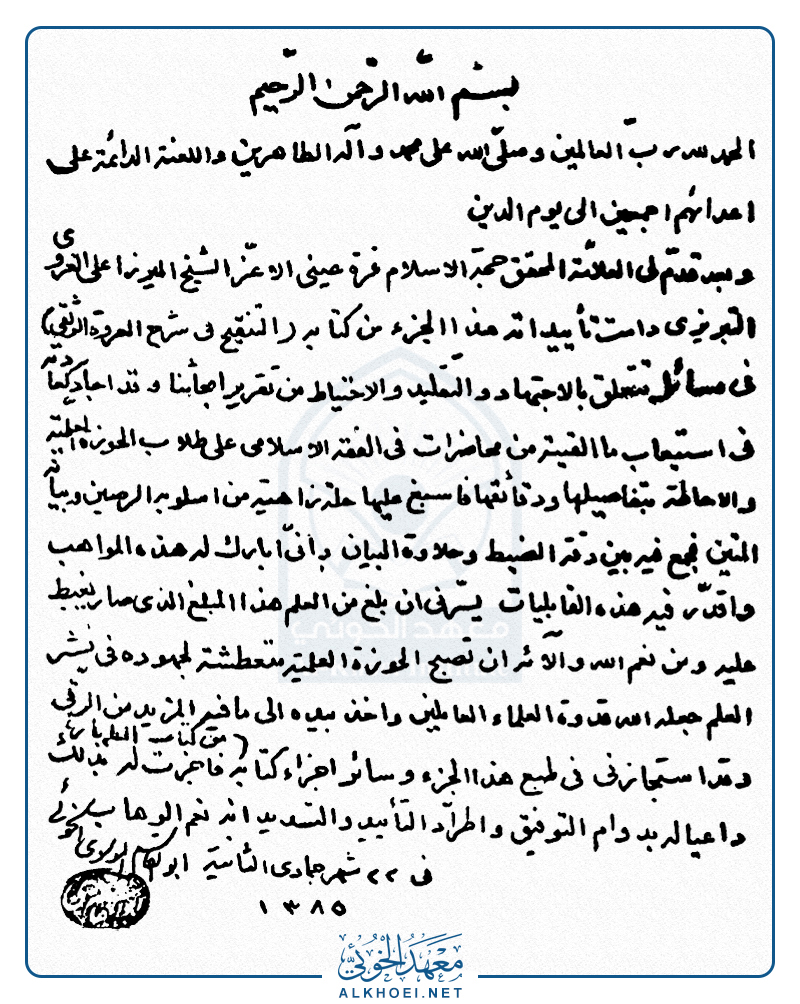 بسم الله الرحمن الرحيم
الحمد لله رب العالمين وصلى الله على محمد وآله الطاهرين واللعنة الدائمة على
اعدائهم اجمعين الى يوم الدين
وبعد قدم لى العلامة المحقق حجة الاسلام قرة عينى الاعز الشيخ الميرزا على الغروى
التبريزى دامت تأييداته هذا الجزء من كتابه (التنقيح فى شرح العروة الوثقى)
فى مسائل تتعلق بالاجتهاد والتقليد والاحتياط من تقرير ابحاثنا وقد اجاد كعادته
فى استيعاب ما القيته من محاضرات فى الفقه الاسلامى على طلاب الحوزة العلمية
والاحاطة بتفاصيلها ودقائقها فاسبغ عليها حلة زاهية من اسلوبه الرصين وبيانه
المتين فجمع فيه بين دقة الضبط وحلاوة البيان وأنى ابارك له هذه المواهب
واقدر فيه هذه القابليات يسرنى ان بلغ من العلم هذا المبلغ الذى صار يغبط
عليه ومن نعم الله وآلائه ان تصبح الحوزة العلمية متعطشة لجهوده فى نشر
العلم جعله الله قدوة العلماء العاملين واخذ بيده الى ما فيه المزيد من الرقى
وقد استجازنى فى طبع هذا الجزء وسائر اجزاء كتابه فاجزت له بذلك
من كتاب الطهارة
داعيا له بدوام التوفيق واطراد التأييد والتسديد انه نعم الوهاب
فى ٢٢ شهر جمادى الثانية ابو القاسم الموسوى الخوئى
١٣٨٥
معهد الخوئي
معهد الخوئي
ALKHOEI.NET